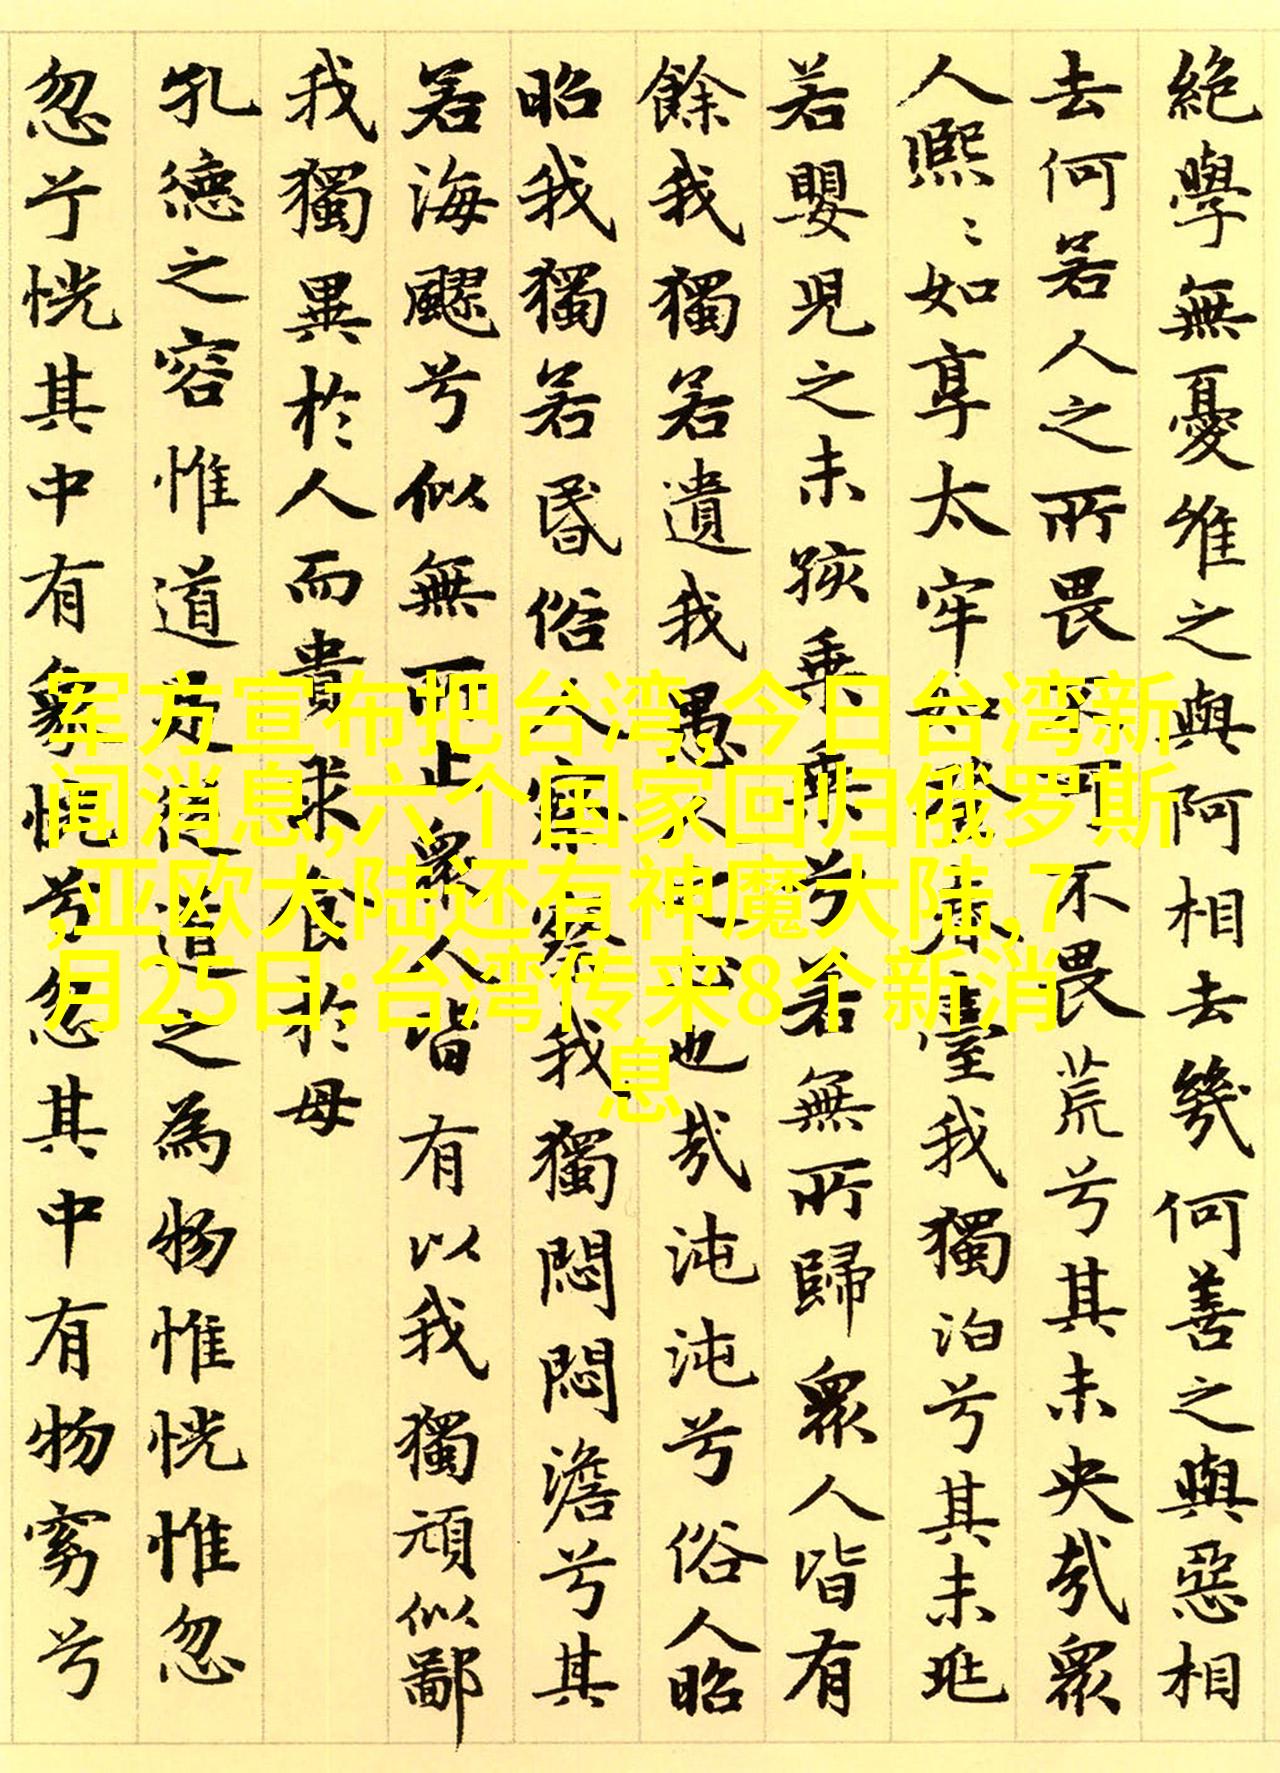 絶學無憂唯之與阿相去幾何善之與惡相
去何若人之所畏不可不畏荒兮其未央哉衆
人熙〻如享太牢如春登臺我獨泊兮其未兆
若嬰兒之未孩乘乘兮若無所歸衆人皆有
餘我獨若遺我愚人之心也哉沌沌兮俗人昭
昭我獨若昏俗人察察我獨悶悶澹兮其
若海飂兮似無所止衆人皆有以我獨頑似鄙
我獨異於人而貴求食於母
孔德之容惟道是從道之為物惟恍惟忽
忽兮恍其中有象恍兮忽其中有物窈兮
军方宣布把台湾,今日台湾新
闻消息,六个国家回归俄罗斯
,亚欧大陆还有神魔大陆,7
月25日:台湾传来8个新消
息